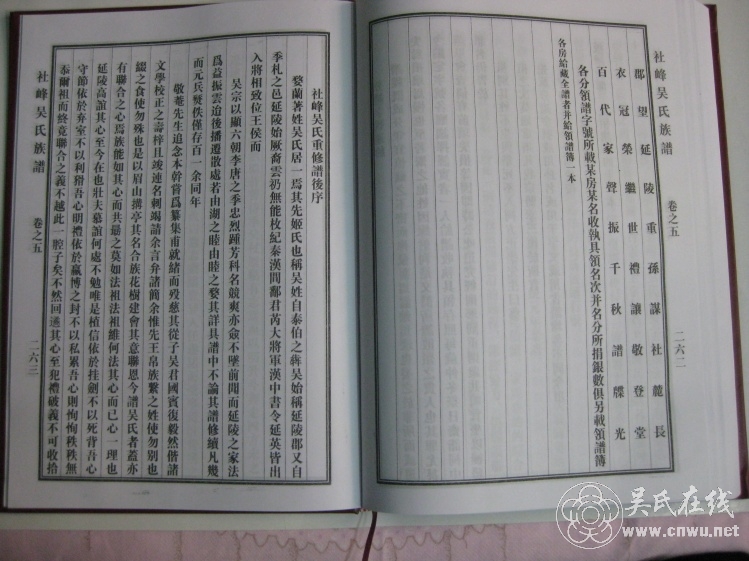 社峰吴氏族譜
卷之五
二六二
郡望延陵重孫謀社麓長
衣冠榮繼世禮讓敬登堂
百代家聲振千秋譜牒光
各分領譜字號所載某房某名收執具領名次并名分所捐銀數俱另載領譜簿
各房給藏全譜者并給領譜簿一本
社峰吴氏重修譜後序
婺蘭著姓吴氏居一焉其先姬氏也稱吴姓自泰伯之犇吴始稱延陵郡又自
季札之邑延陵始厥裔雲礽無能枚紀秦漢間鄱君芮大將軍漢中書令延英皆出
入將相致位王侯而
吴宗以顯六朝李唐之季忠烈踵芳科名競爽亦僉不墜前聞而延陵之家法
爲益振雲迨後播遷散處若由湖之睦由睦之婺其詳具譜中不論其譜修續凡幾
而元兵燹佚僅存百一余同年
敬菴先生追念本幹嘗爲纂集甫就緒而殁慈其從子吴君國賓復毅然偕諸
文學校正之壽梓且竣速名刺竭請余言弁諸簡余惟先王帛族繫之姓使勿别也
綴之食使勿殊也是以眉山搆亭其名合族花樹建會其意聯恩今譜吴氏者蓋亦
有聯合之心焉族能如其心而共遜之莫如法祖法祖維何法其心而已心一理也
延陵高誼其心至今在也壯夫墓誼何處不勉唯是植信依於挂劍不以死背吾心
守節依於弃室不以利猎吾心明禮依於嬴博之封不以私累吾心則恂恂秩秩無
忝爾祖而終竟聯合之義不越此一腔子矣不然回遹其心至犯禮破義不可收拾
社峰吴氏族譜
卷之五
二六三
吴氏在线
www.cnwu.net